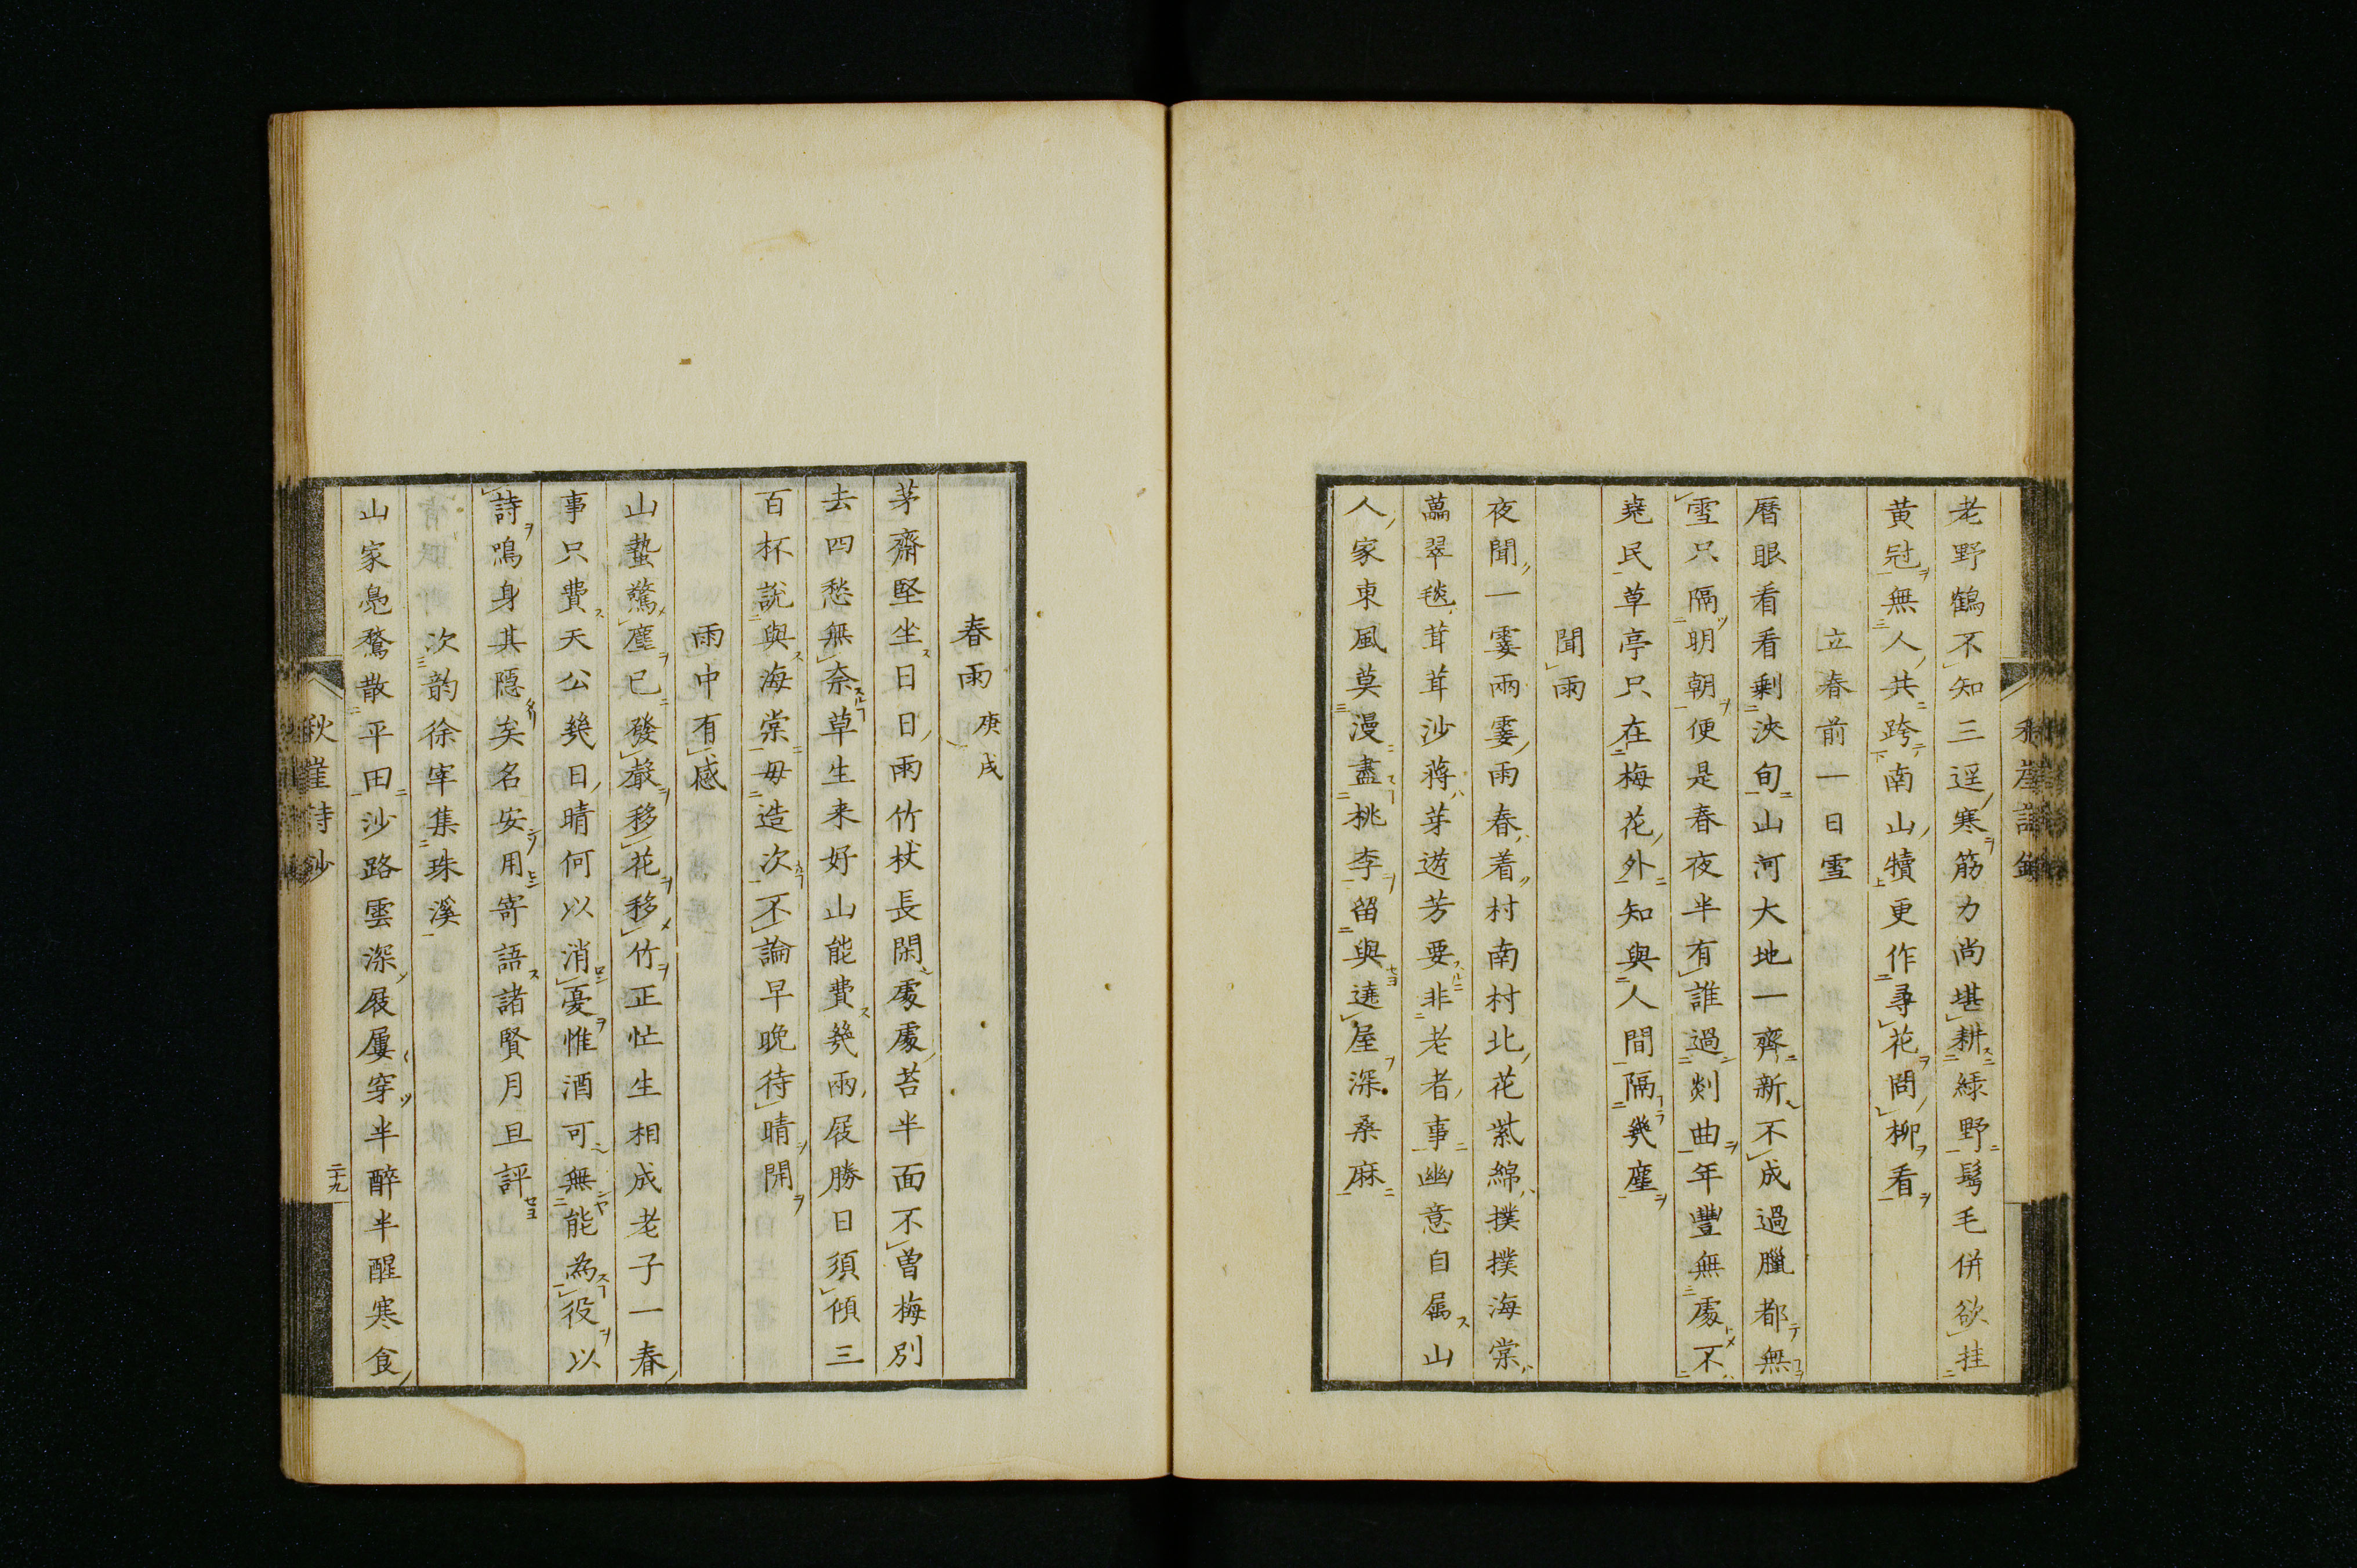 老野鶴不知三逕寒筋力尚堪耕緑野髩毛併欲挂
黄冠無人共跨南山犢更作尋花問柳看
立春前一日雪
暦眼看看剰浹旬山河大地一齊新不成過臘都無
雪只隔明朝便是春夜半有誰過剡曲年豐無處不
堯民草亭只在梅花外知與人間隔幾塵
聞雨
夜聞一霎兩霎雨春着村南村北花紫綿撲撲海棠
萬翠毯茸茸沙蔣芽遊芳要非老者事幽意自属山
人家東風莫漫盡桃李留與遶屋深桑麻
春雨 庚戌
茅齋堅坐日日雨竹杖長閑處處苔半面不曽梅別
去四愁無奈草生来好山能費幾兩屐勝日須傾三
百杯説與海棠毋造次不論早晩待晴開
雨中有感
山蟄驚塵已發聲移花移竹正忙生相成老子一春
事只費天公幾日晴何以消憂惟酒可無能為役以
詩鳴身其隠矣名安用寄語諸賢月旦評
次韵徐宰集珠溪
山家鳧鶩散平田沙路雲深屐屢穿半醉半醒寒食
秋崖詩鈔
二十九